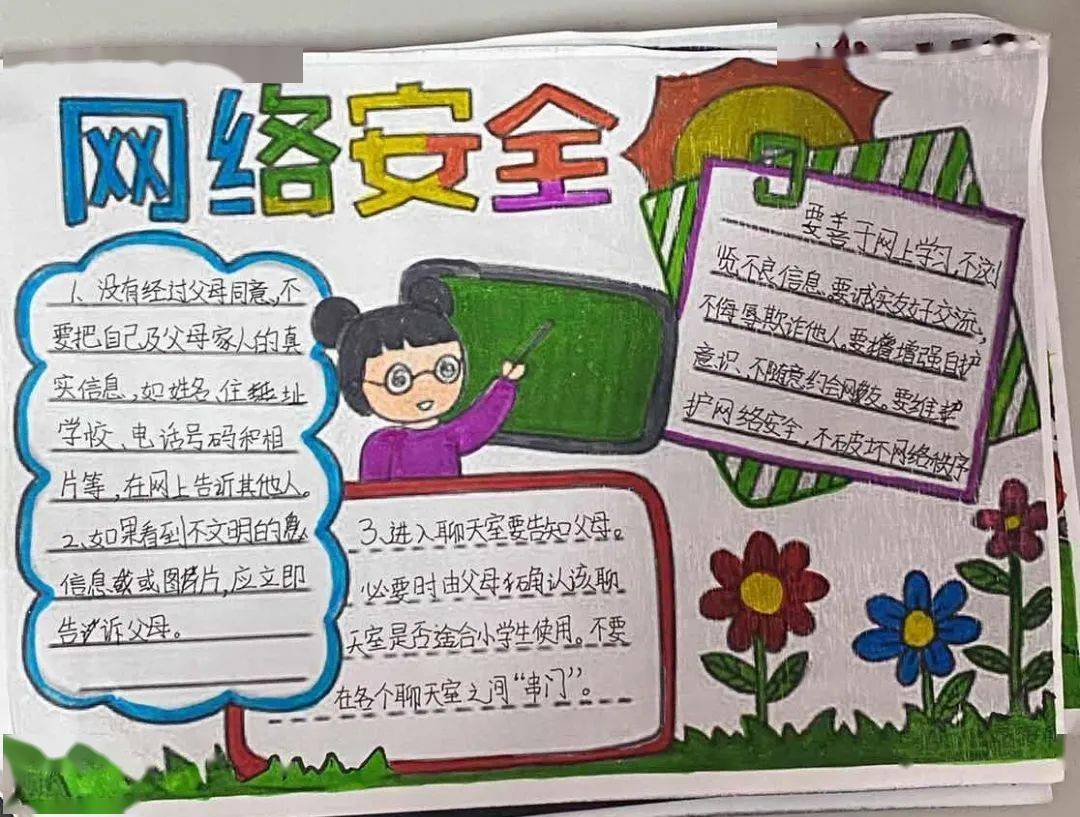 网络安全
1、没有经过父母同意,不
要把自己及父母家人的真
实信息,如姓名、住址
学校、电话号码和相
片等,在网上告诉其他人。
2、如果看到不文明的
信息或图片,应立即
告诉父母。
3、进入聊天室要告知父母。
必要时由父母确认该聊
天室是否适合小学生使用。不要
在各个聊天室之间“串门”。
要善于网上学习,不浏
览不良信息。要诚实友好交流,
不侮辱欺诈他人。要增强自护
意识,不随意约会网友。要维护
护网络安全,不破坏网络秩序